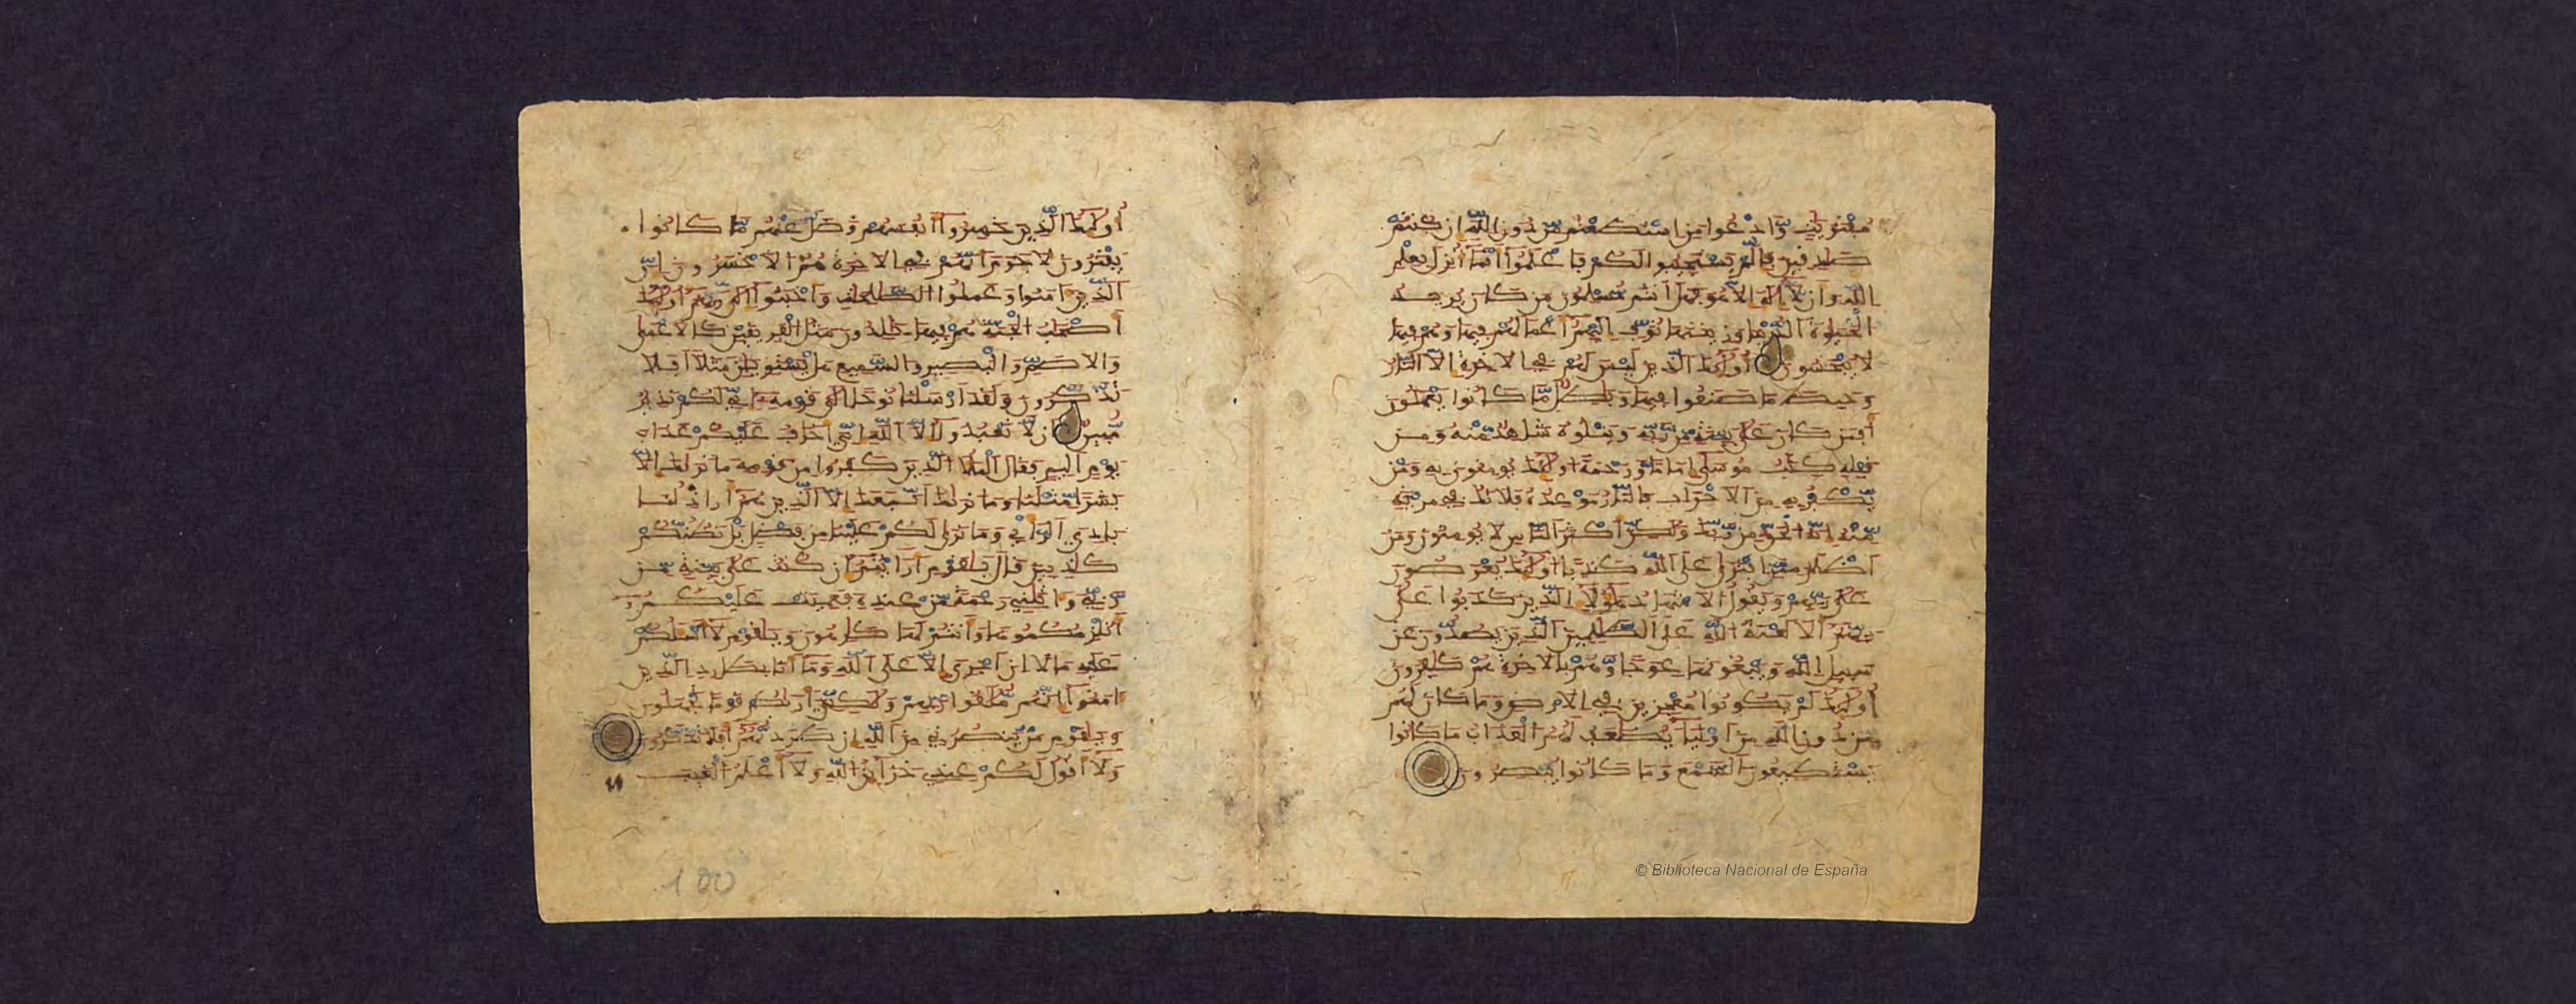 مفتريت وادعوا من استطعتم من دون الله ان كنتم
صدقين فإلم يستجيبوا لكم فاعلموا أنما أنزل بعلم
الله وأن لا إله إلا هو فهل أنتم مسلمون من كان يريد
الحيوة الدنيا وزينتها نوف إليهم أعملهم فيها وهم فيها
لا يبخسون أولئك الذين ليس لهم في الاخرة إلا النار
وحبط ما صنعوا فيها وبطل ما كانوا يعملون
أفمن كان على بينة من ربه ويتلوه شاهد منه ومن
قبله كتب موسى إماما ورحمة أولئك يومنون به ومن
يكفر به من الاحزاب فالنار موعده فلا تك في مرية
منه إنه الحق من ربك ولكن أكثر الناس لا يومنون ومن
أظلم ممن افترى على الله كذبا أولئك يعرضون
على ربهم ويقول الاشهاد هؤلاء الذين كذبوا على
ربهم ألا لعنة الله على الظلمين الذين يصدون عن
سبيل الله ويبغونها عوجا وهم بالاخرة هم كفرون
أولئك لم يكونوا معجزين في الارض وما كان لهم
من دون الله من أولياء يضعف لهم العذاب ما كانوا
يستطيعون السمع وما كانوا يبصرون
أولئك الذين خسروا أنفسهم وضل عنهم ما كانوا
يفترون لا جرم أنهم في الاخرة هم الاخسرون إن
الذين امنوا وعملوا الصلحت وأخبتوا إلى ربهم أولئك
أصحب الجنة هم فيها خلدون مثل الفريقين كالاعمى
والاصم والبصير والسميع هل يستوين مثلا أفلا
تذكرون ولقد أرسلنا نوحا إلى قومه إني لكم نذير
مبين أن لا تعبدوا إلا الله إني أخاف عليكم عذاب
يوم أليم فقال الملأ الذين كفروا من قومه ما نريك إلا
بشرا مثلنا وما نريك اتبعك إلا الذين هم أراذلنا
بادي الرأي وما نرى لكم علينا من فضل بل نظنكم
كذبين قال يقوم أرايتم إن كنت على بينة من
ربي واتيني رحمة من عنده فعميت عليكم
أنلزمكموها وأنتم لها كرهون ويقوم لا أسلكم
عليه مالا إن أجري إلا على الله وما أنا بطارد الذين
امنوا إنهم ملقوا ربهم ولكني أريكم قوما تجهلون
ويقوم من ينصرني من الله إن طردتهم أفلا تذكرون
ولا أقول لكم عندي خزائن الله ولا أعلم الغيب
100
© Biblioteca Nacional de España